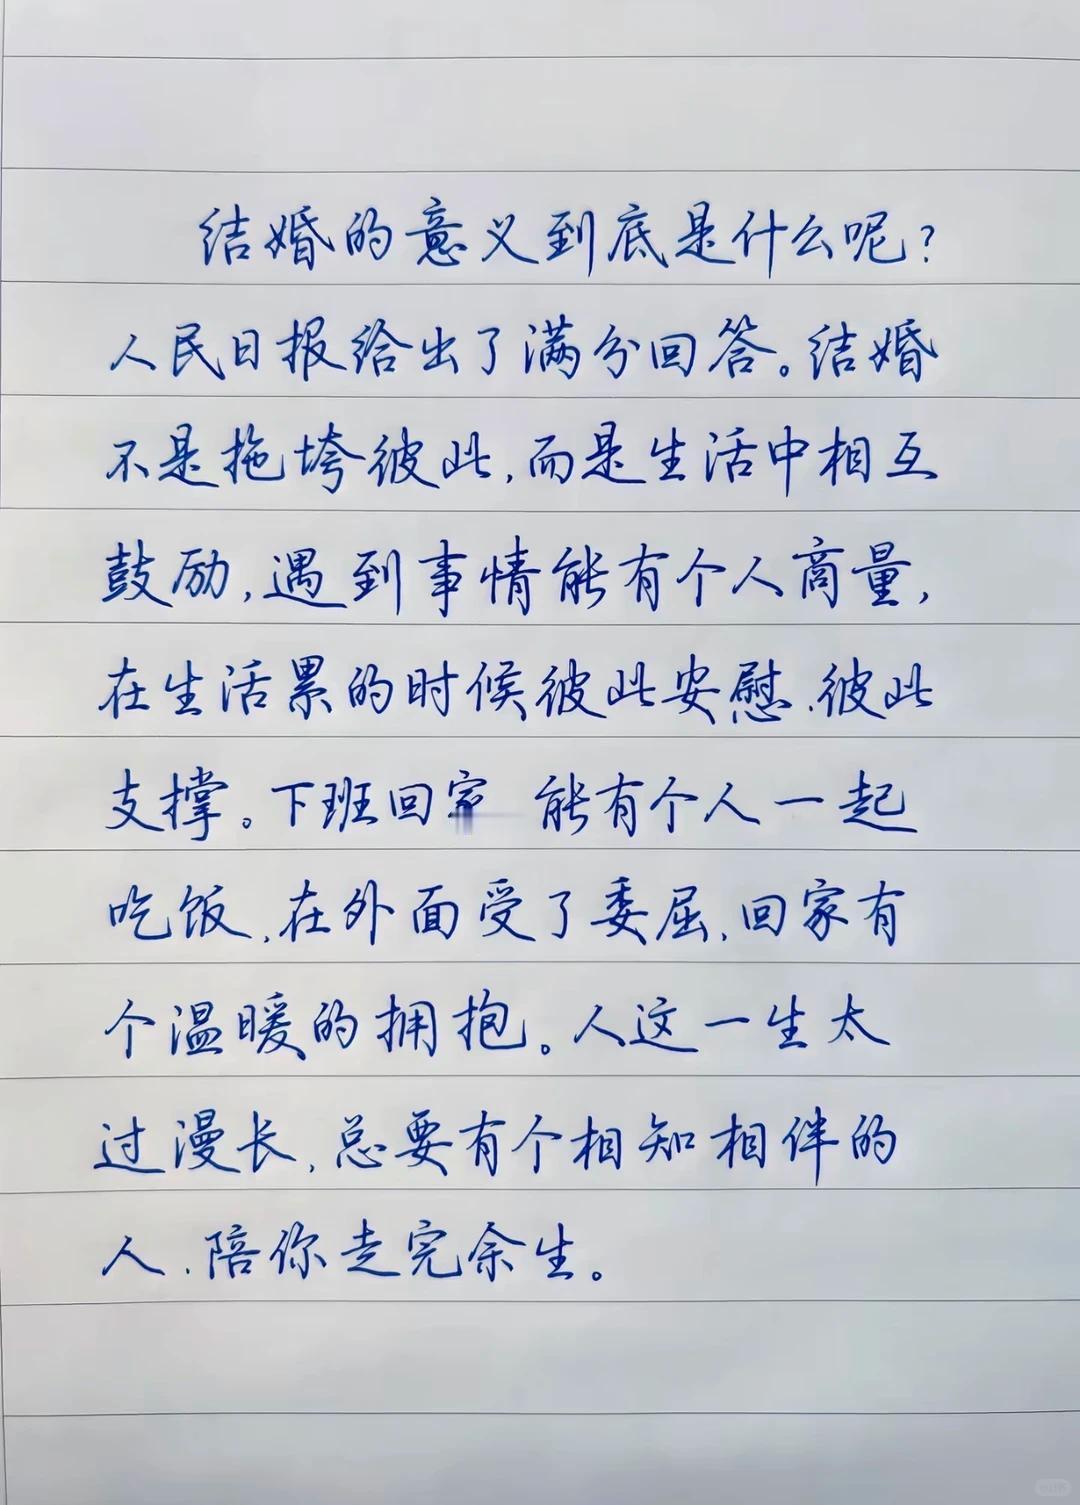 结婚的意义到底是什么呢?
人民日报给出了满分回答。结婚
不是拖垮彼此,而是生活中相互
鼓励,遇到事情能有个人商量,
在生活累的时候彼此安慰,彼此
支撑。下班回家 能有个人一起
吃饭,在外面受了委屈,回家有
个温暖的拥抱。人这一生太
过漫长,总要有个相知相伴的
人,陪你走完余生。